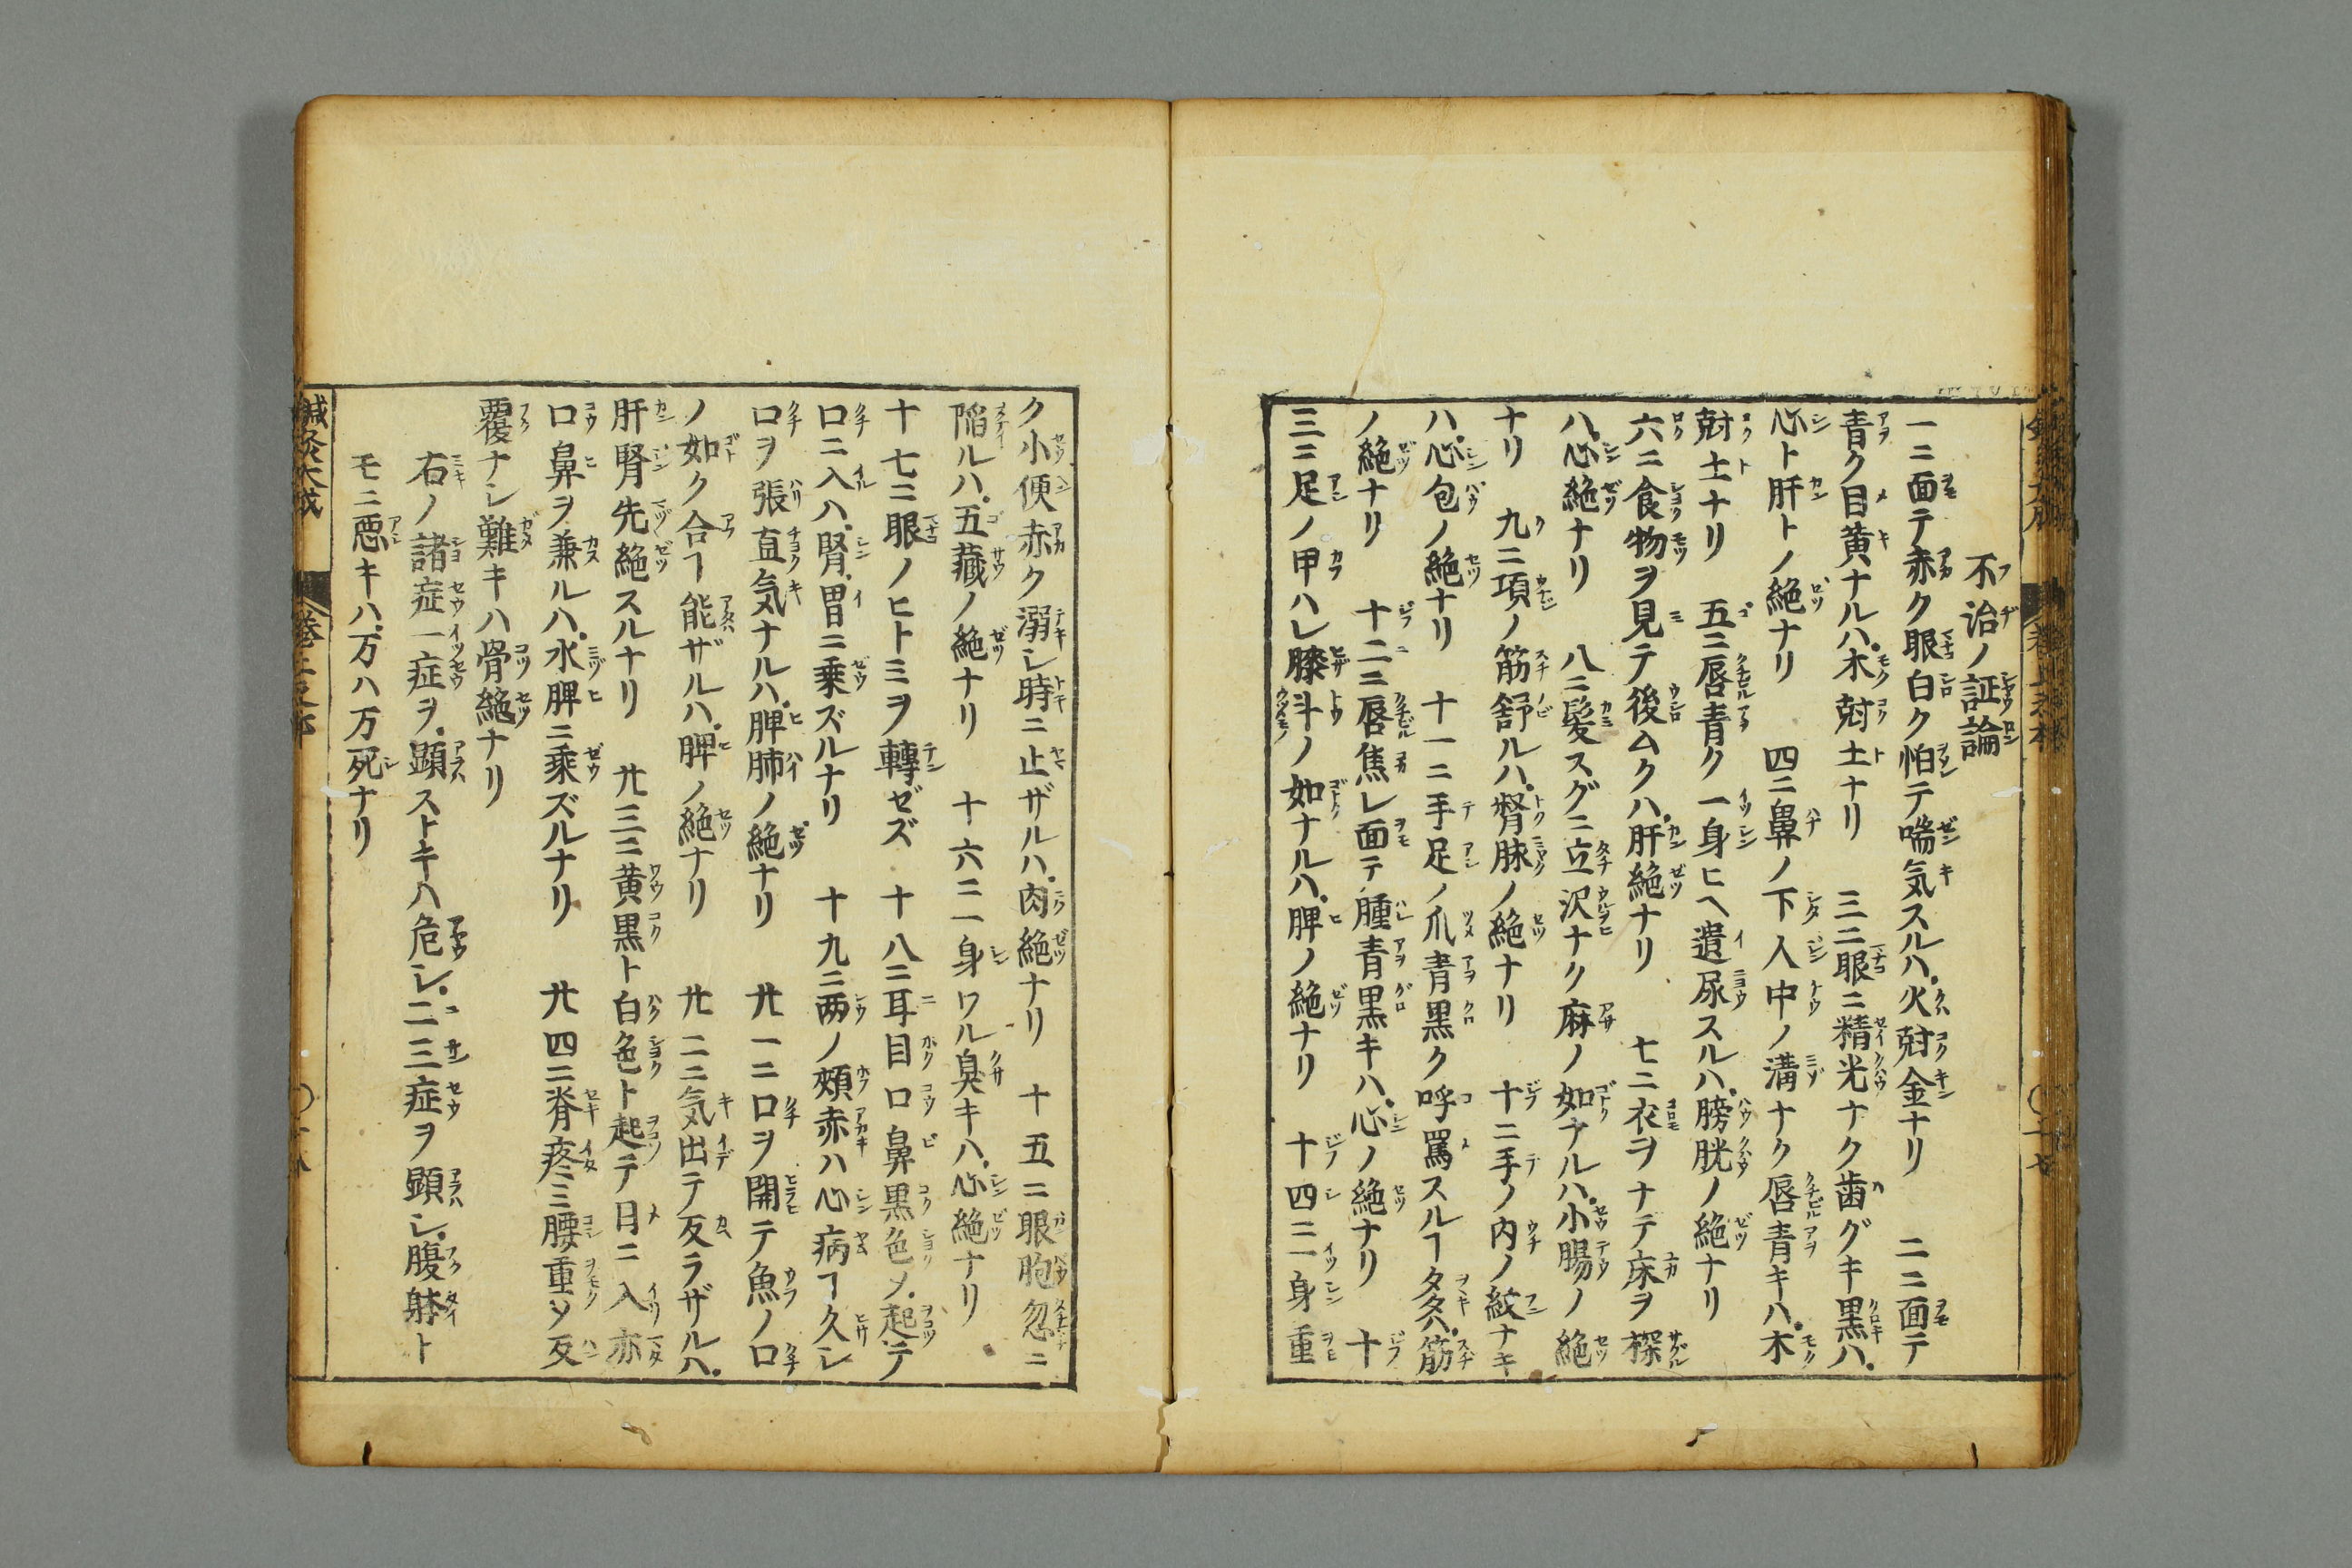 不治ノ証論
一ニ面テ赤ク眼白ク怕テ喘気スルハ火尅金ナリ　二ニ面テ
青ク目黄ナルハ木尅土ナリ　三ニ眼ニ精光ナク歯グキ黒ハ
心ト肝トノ絶ナリ　四ニ鼻ノ下人中ノ溝ナク唇青キハ木
尅土ナリ　五ニ唇青ク一身ヒヘ遺尿スルハ膀胱ノ絶ナリ
六ニ食物ヲ見テ後ムクハ肝絶ナリ　七ニ衣ヲナデ床ヲ探
ハ心絶ナリ　八ニ髪スグニ立沢ナク麻ノ如ナルハ小腸ノ絶
ナリ　九ニ項ノ筋舒ルハ督脉ノ絶ナリ　十ニ手ノ内ノ紋ナキ
ハ心包ノ絶ナリ　十一ニ手足ノ爪青黒ク呼罵スルヿ多ハ筋
ノ絶ナリ　十二ニ唇焦レ面テ腫青黒キハ心ノ絶ナリ　十
三ニ足ノ甲ハレ膝斗ノ如ナルハ脾ノ絶ナリ　十四ニ一身重
ク小便赤ク溺シ時ニ止ザルハ肉絶ナリ　十五ニ眼胞忽ニ
陥ルハ五藏ノ絶ナリ　十六ニ一身ワル臭キハ心絶ナリ
十七ニ眼ノヒトミヲ轉ゼズ　十八ニ耳目口鼻黒色〆起テ
口ニ入ハ腎胃ニ乗ズルナリ　十九ニ两ノ頬赤ハ心病ヿ久シ
口ヲ張直気ナルハ脾肺ノ絶ナリ　廿一ニ口ヲ開テ魚ノ口
ノ如ク合ヿ能ザルハ脾ノ絶ナリ　廿二ニ気出テ反ラザルハ
肝腎先絶スルナリ　廿三ニ黄黒ト白色ト起テ目ニ入亦
口鼻ヲ兼ルハ水脾ニ乗ズルナリ　廿四ニ脊疼ミ腰重〆反
覆ナシ難キハ骨絶ナリ
右ノ諸症一症ヲ顕ストキハ危シ二三症ヲ顕シ腹䏻ト
モニ悪キハ万ハ万死ナリ
鍼灸大成